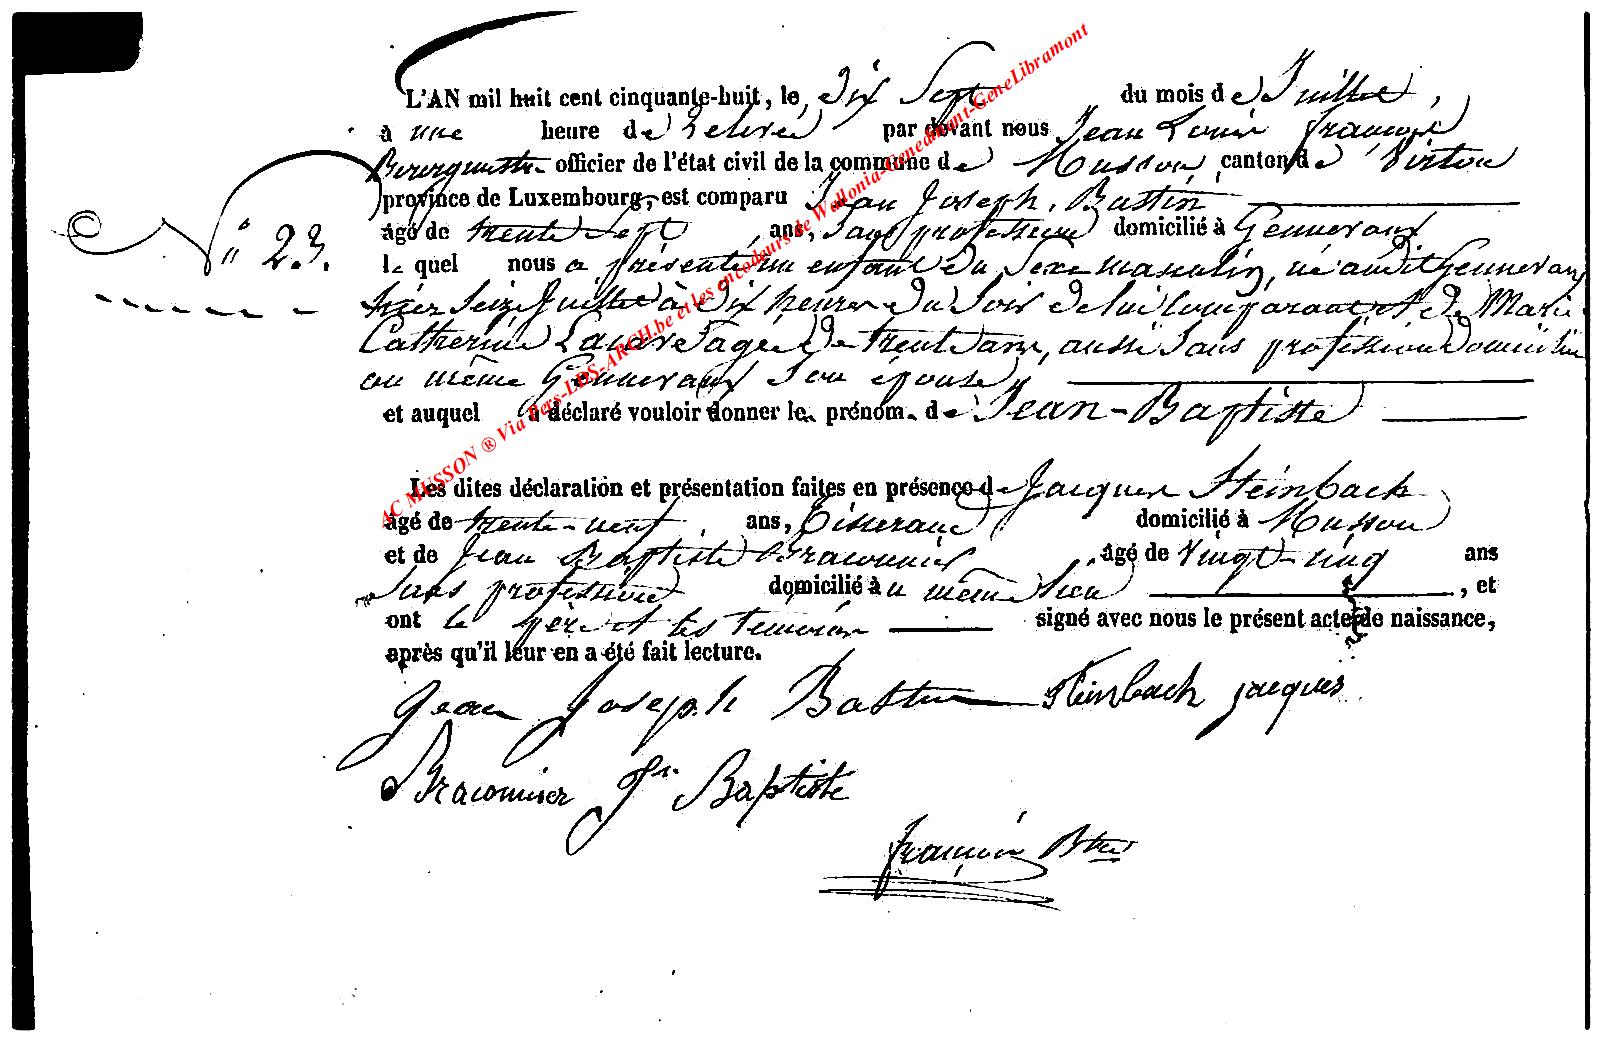 L'AN mil huit cent cinquante-huit, le Dix Sept du mois de Juillet,
à une heure de relevée par devant nous Jean Louis françois
Bourgmestre officier de l'état civil de la commune de Musson, canton de Virton
province de Luxembourg, est comparu Jean Joseph Bastin
N° 23.
âgé de trente Sept ans, Sans profession domicilié à Gennevaux
le quel nous a présenté un enfant du Sexe masculin, né audit Gennevaux
hier Seize Juillet à dix heures du Soir de lui Comparant et de Marie
Catherine âgée de trente ans, aussi Sans profession domiciliée
au même Gennevaux Son épouse
et auquel a déclaré vouloir donner le prénom de Jean-Baptiste
Les dites déclaration et présentation faites en présence de Jacques Steinbach
âgé de trente-neuf ans, Tisserand domicilié à Musson
et de Jean Baptiste Braconnier âgé de Vingt-cinq ans
Sans profession domicilié au même lieu, et
ont le père et les témoins signé avec nous le présent acte de naissance,
après qu'il leur en a été fait lecture.
Jean Joseph Bastin Steinbach jacques
Braconnier Jn Baptiste
françois Btre
AC MUSSON ® Via Pers-LDS-ARCH.be et les encodeurs de Wallonia-Genedinant-GeneLibramont